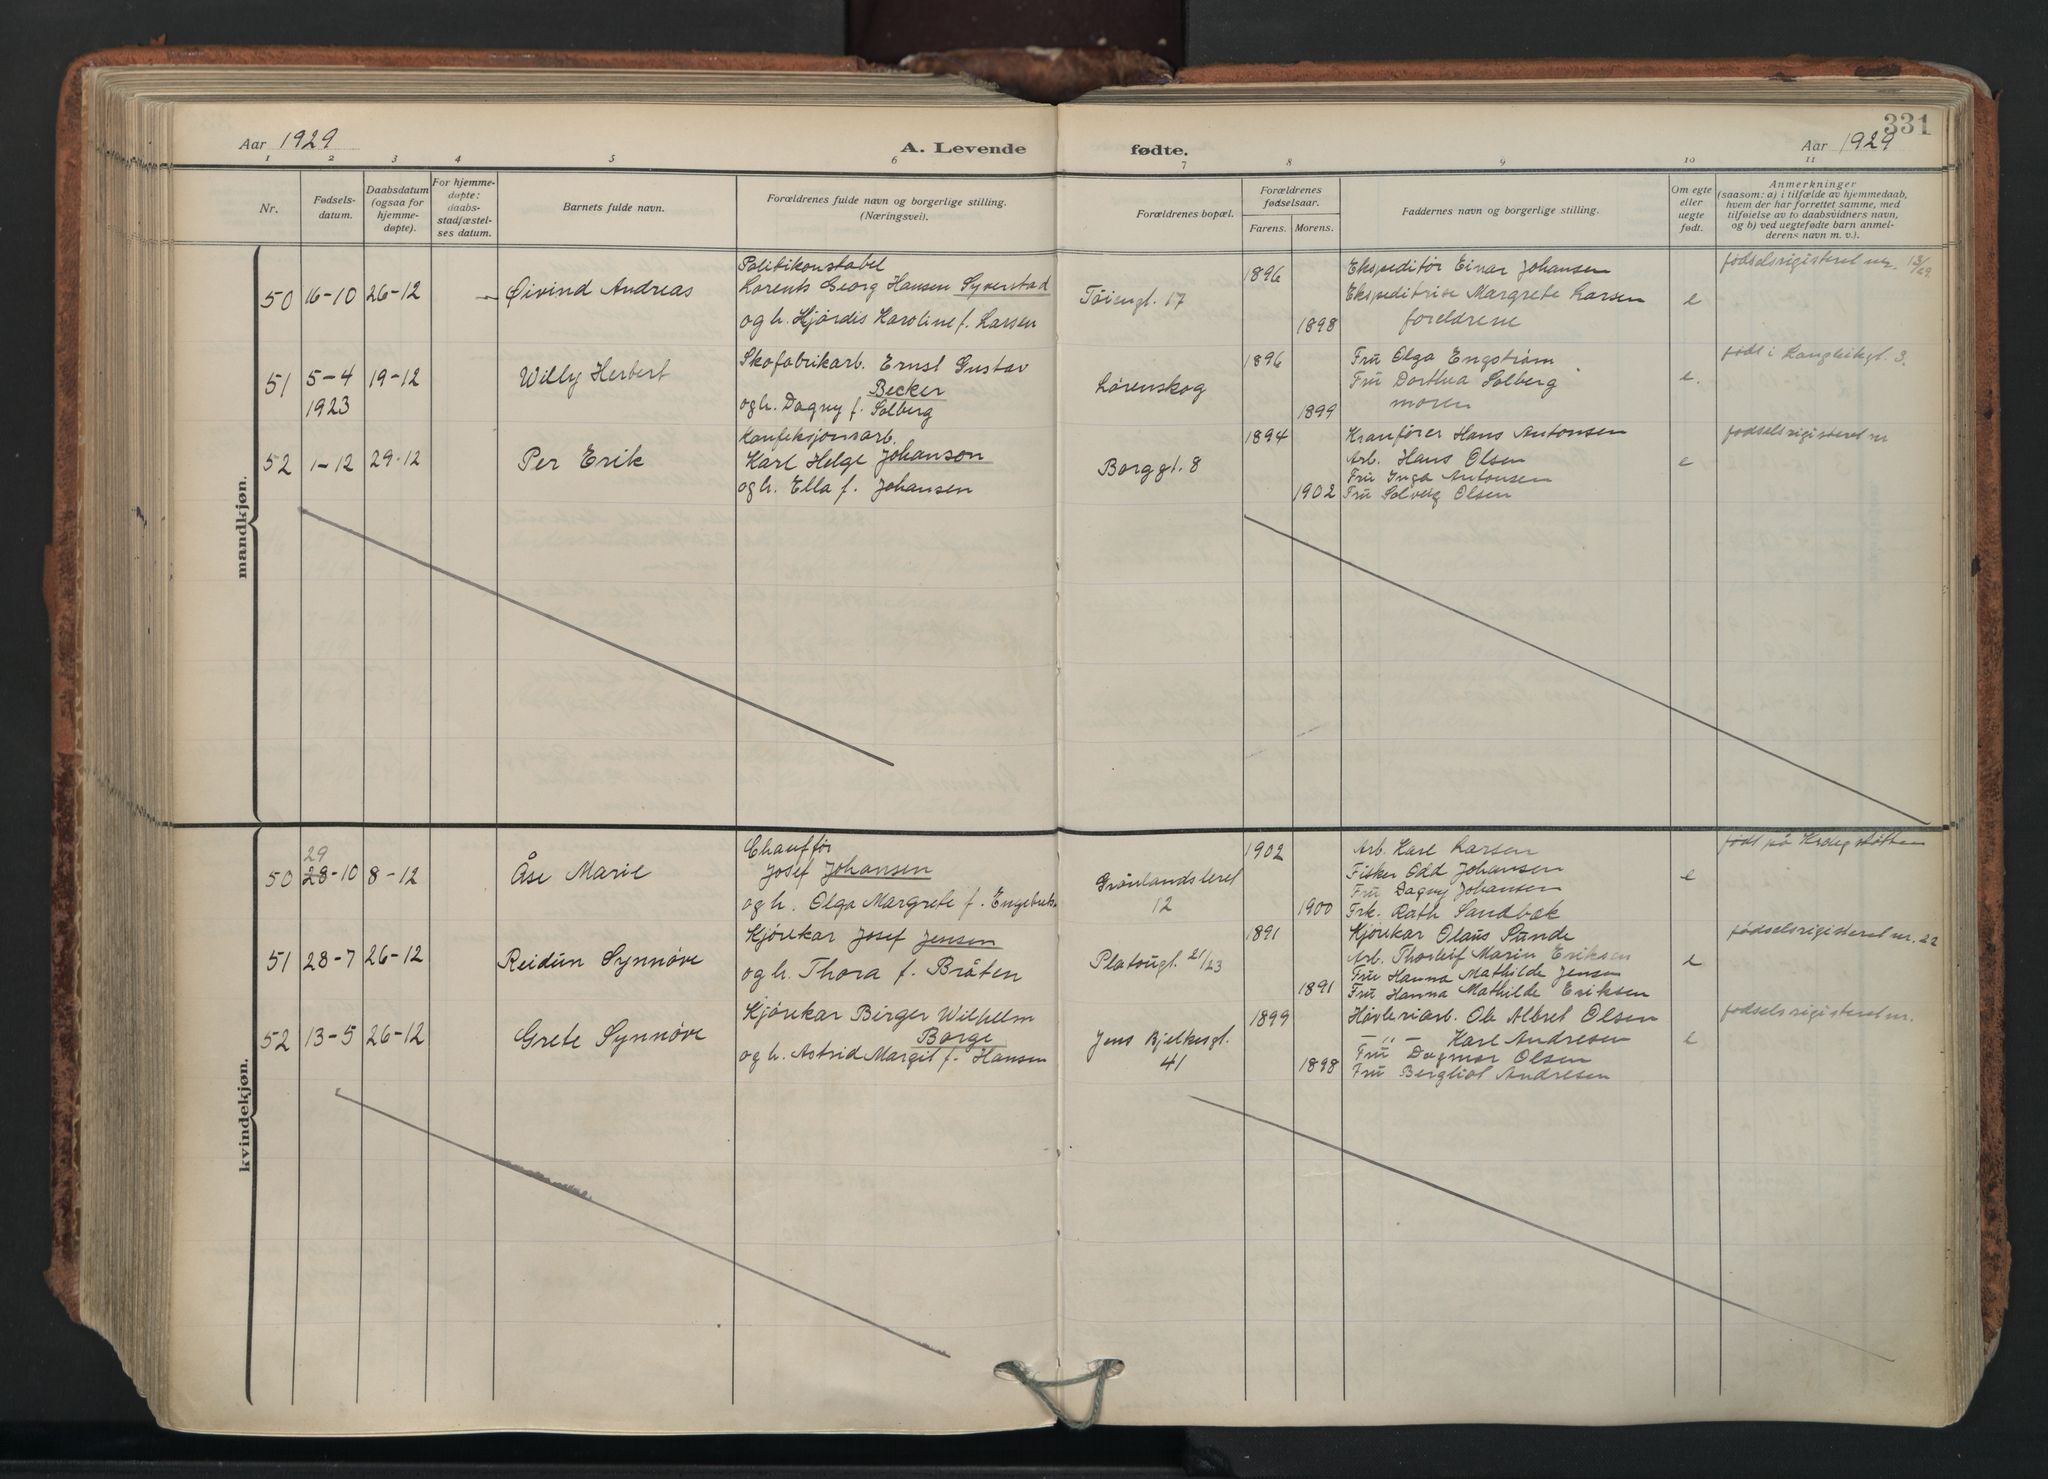 331
Aar 1929
A. Levende
fødte.
Aar 1929
1 2 3 4 5 6 7 8 9 10 11
Nr.
Fødsels-
datum.
Daabsdatum
(ogsaa for
hjemme-
døpte).
For hjemme-
døpte:
daabs-
stadfæstel-
ses datum.
Barnets fulde navn.
Forældrenes fulde navn og borgerlige stilling.
(Næringsvei).
Forældrenes bopæl.
Forældrenes
fødselsaar.
Farens. Morens.
Faddernes navn og borgerlige stilling.
Om egte
eller
uegte
født.
Anmerkninger
(saasom: a) i tilfælde av hjemmedaab,
hvem der har forrettet samme, med
tilføielse av to daabsvidners navn,
og b) ved uegtefødte barn anmel-
derens navn m. v.).
mandkjøn.
Politikonstabel 1896 Ekspeditør Einar Johansen fødselsrigisteret nr. 13/29
50 16-10 26-12 Øivind Andreas Lorents Georg Hansen Syverstad Tøiengt. 17 Ekspeditrise Margrete Larsen e
og h. Hjørdis Karoline f. Larsen 1898 foreldrene
Skofabrikarb. Ernst Gustav 1896 Fru Olga Engstrøm født i 3.
51 5-4 19-12 Willy Herbert Becker Lørenskog Fru Dorthea Solberg e.
1923 og h. Dagny f. Solberg 1899 moren
Konfeksjonsarb. 1894 Kranfører Hans Antonsen fodselsrigisteret nr
52 1-12 29-12 Per Erik Karl Helge Johanson Borggt. 8 Arb. Hans Olsen e
og h. Ella f. Johansen Fru Inga Antonsen
1902 Fru Solveig Olsen
kvindekjøn.
29 Chauffør 1902 Arb. Karl Larsen født på
50 28-10 8-12 Åse Marie Josef Johansen Grønlandsleret Fisker Odd Johansen e
og h. Olga Margrete f. Engebrik. 12 Fru Dagny Johansen
1900 Frk. Rath Sandbak
Kjørekar Josef Jensen 1891 Kjørekar Olaus Sunde fødselsrigisteret nr. 22
51 28-7 26-12 Reidun Synnøve og h. Thora f. Bråten Platougt. 21/23 Arb. Thorleif Marin Eriksen e
Fru Hanna Mathilde Jensen
1891 Fru Hanna Mathilde Eriksen
Kjørekar Birger Wilhelm 1899 Høvleriarb. Ole Albret Olsen fodselsrigisteret nr.
52 13-5 26-12 Grete Synnøve Borge Jens Bjelkesgt. – " – Karl Andresen e
og h. Astrid Margit f. Hansen 41 Fru Dagmar Olsen
1898 Fru Bergliot Andresen